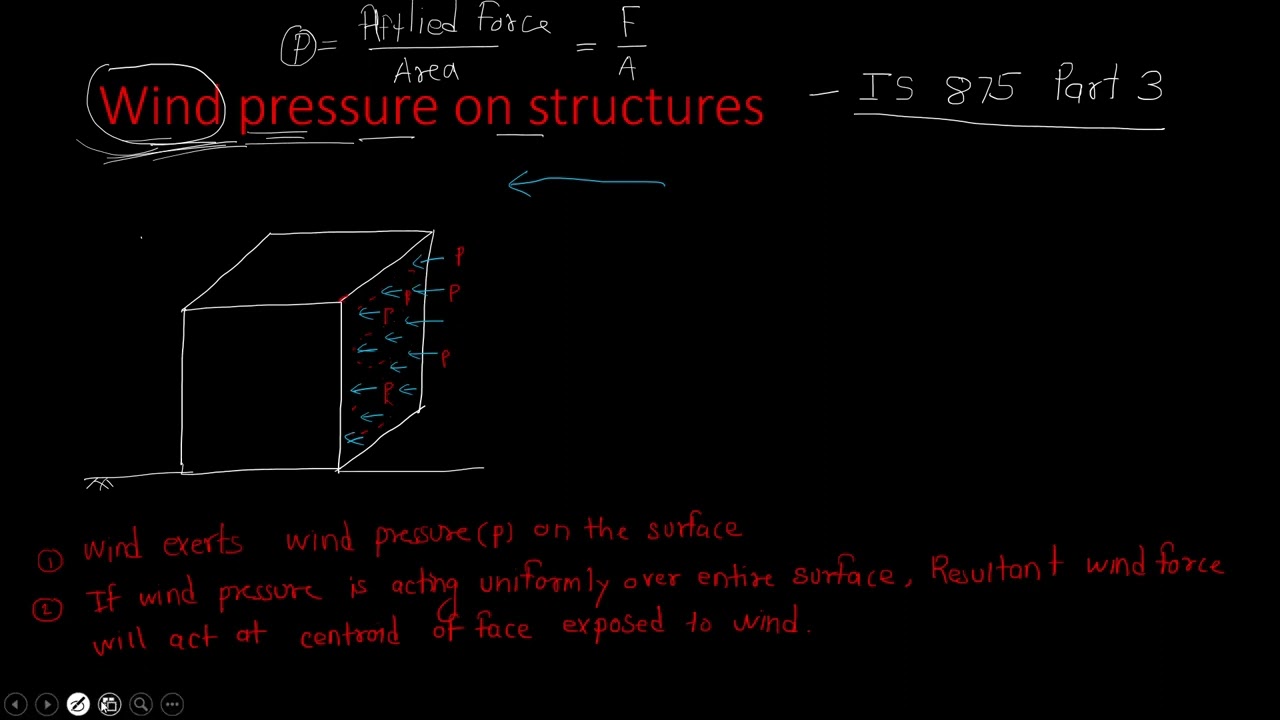 p = Applied Force / Area = F / A
Wind pressure on structures
– IS 875 Part 3
P
P P
P
P
P
① Wind exerts wind pressure(p) on the surface
② If wind pressure is acting uniformly over entire surface, Resultant wind force
will act at centroid of face exposed to wind.